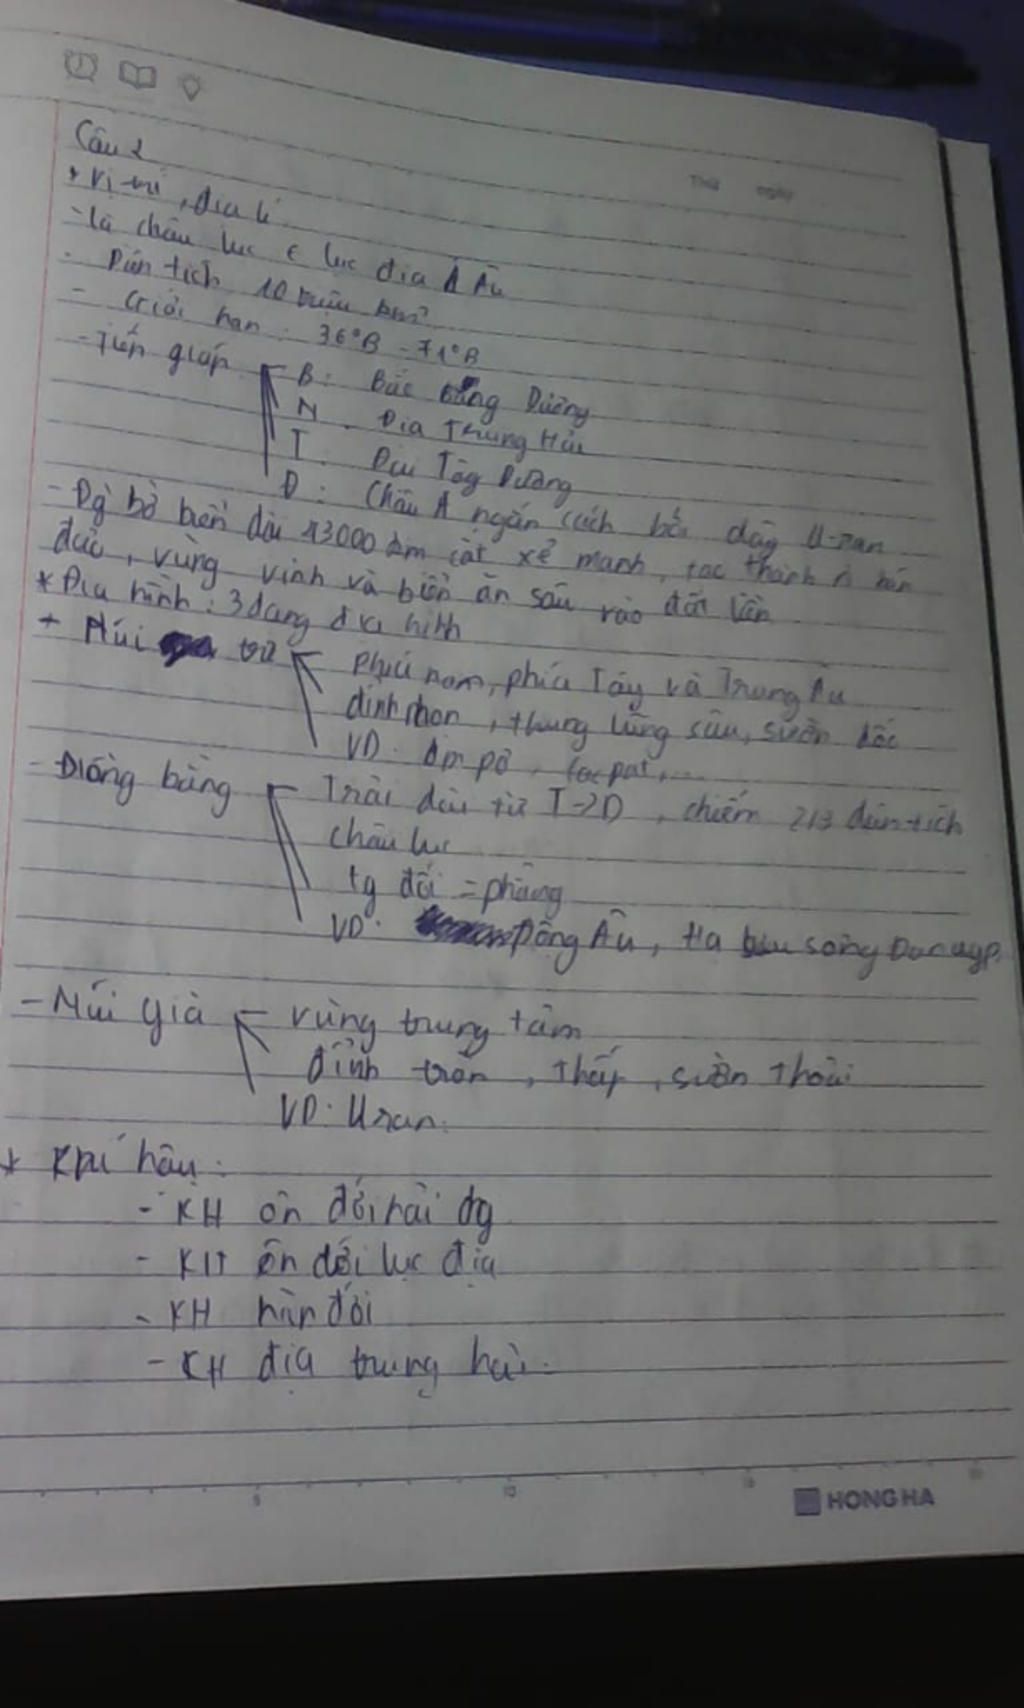 Thứ ngày
Câu 2
* Vị trí, địa lí
- là châu lục ∈ lục địa Á Âu
- Diện tích 10 triệu km²
- Giới hạn: 36°B - 71°B
- Tiếp giáp - B: Bắc Băng Dương
N. Địa Trung Hải
T: Đại Tây Dương
Đ: Châu Á ngăn cách bởi dãy U-ran
- Đg bờ biển dài 43000 km cắt xẻ mạnh, tạo thành n bán
đảo, vũng vịnh và biển ăn sâu vào đất liền
* Địa hình: 3 dạng địa hình
+ Núi trẻ phía nam, phía Tây và Trung Âu
đỉnh nhọn, thung lũng sâu, sườn dốc
VD: An pơ, Cacpat,...
- Đồng bằng - Trải dài từ T->Đ, chiếm 2/3 diện tích
châu lục
tg đối = phẳng
VD: Đông Âu, hạ lưu sông Đanuyp.
- Núi già - vùng trung tâm
đỉnh tròn, thấp, sườn thoải
VD: Uran.
* Khí hậu:
- KH ôn đới hải dg
- KH ôn đới lục địa
- KH hàn đới
- KH địa trung hải.
5 10 15 20
HONG HA